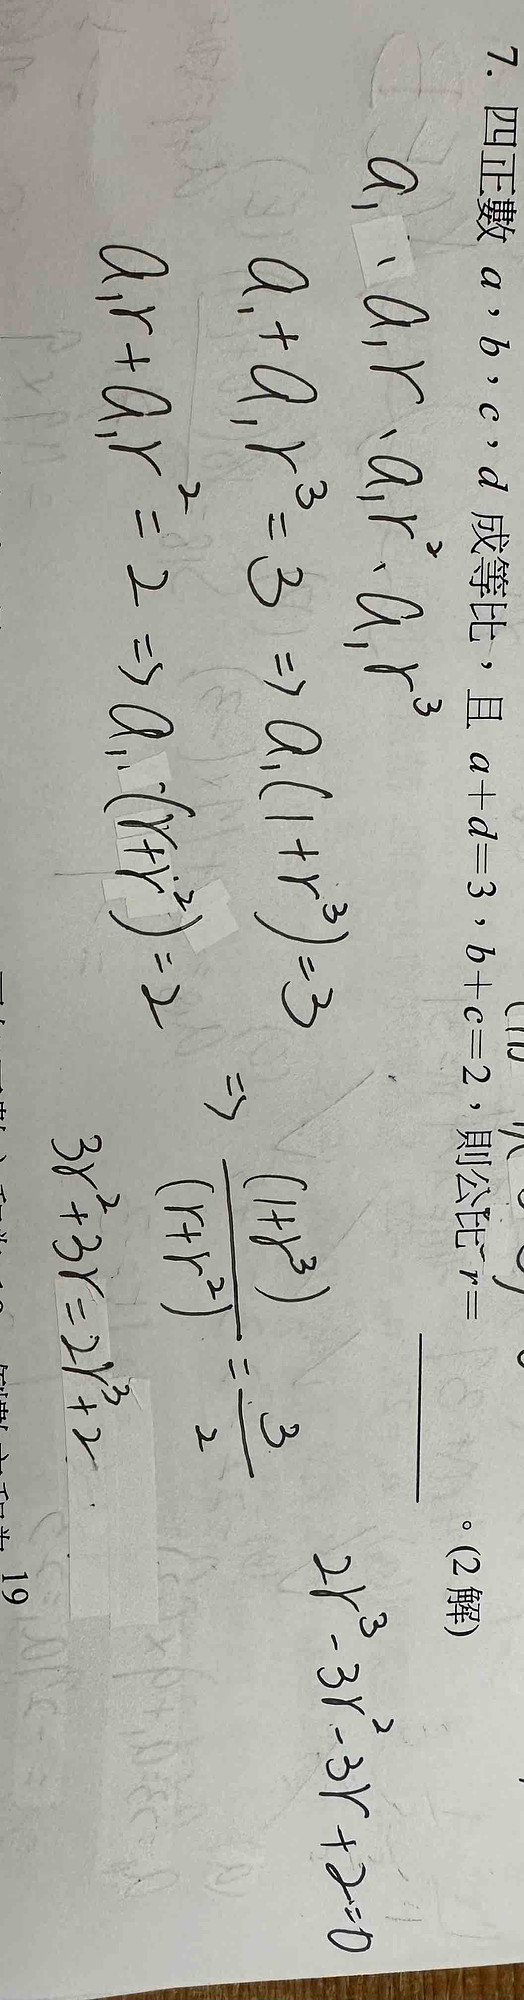 7. 四正數 a,b,c,d 成等比,且 a+d=3,b+c=2,則公比 r=________。(2解)
a₁、a₁r、a₁r²、a₁r³
a₁+a₁r³=3 ⇒ a₁(1+r³)=3
a₁r+a₁r²=2 ⇒ a₁·(r+r²)=2
⇒ (1+r³)/(r+r²) = 3/2
3r²+3r=2r³+2
2r³-3r²-3r+2=0
19